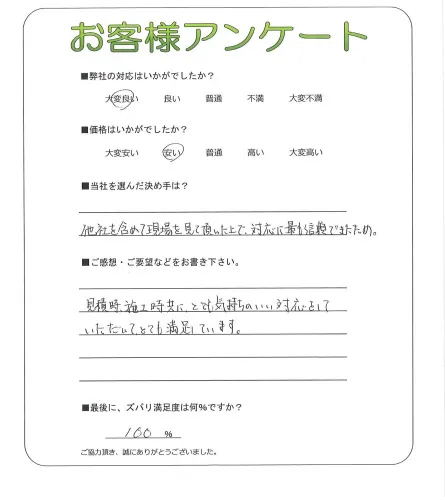 お客様アンケート
■弊社の対応はいかがでしたか?
大変良い 良い 普通 不満 大変不満
■価格はいかがでしたか?
大変安い 安い 普通 高い 大変高い
■当社を選んだ決め手は?
他社を含めて現場を見て頂いた上で、対応に最も信頼できたため。
■ご感想・ご要望などをお書き下さい。
見積時、施工時共に、とても気持ちのいい対応をして
いただいて、とても満足しています。
■最後に、ズバリ満足度は何%ですか?
100 %
ご協力頂き、誠にありがとうございました。